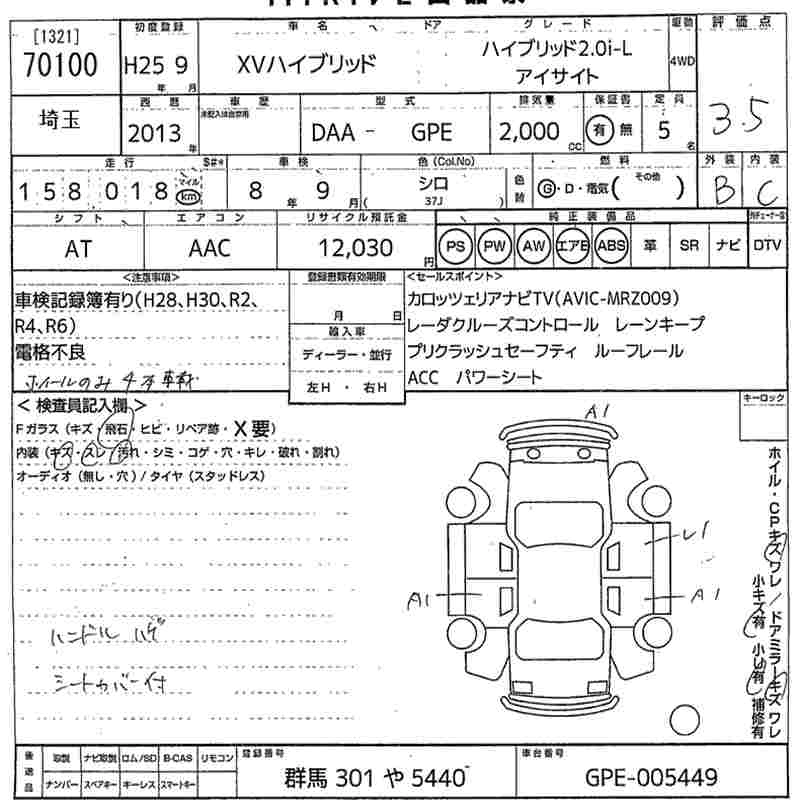 [1321]
70100
初度登録
H25 9
年 月
車名 ドア グレード
XVハイブリッド
ハイブリッド2.0i-L
アイサイト
駆動
4WD
評価点
3.5
埼玉
西暦
2013
年
車歴
未記入は自家用
型式
DAA - GPE
排気量
2,000
CC
保証書
有 無
定員
5
名
走行 S#*
158018
マイル
km
車検
8年 9月
色(Col.No)
シロ
( 37J )
色替
燃料
G・D・電気( その他 )
外装
B
内装
C
シフト
AT
エアコン
AAC
リサイクル預託金
12,030
円
純正装備品
PS PW AW エアB ABS 革 SR ナビ
DTV
<注意事項>
車検記録簿有り(H28、H30、R2、
R4、R6)
電格不良
ホイールのみ 4本車載
登録書類有効期限
月 日
輸入車
ディーラー・並行
左H・右H
<セールスポイント>
カロッツェリアナビTV(AVIC-MRZ009)
レーダクルーズコントロール レーンキープ
プリクラッシュセーフティ ルーフレール
ACC パワーシート
<検査員記入欄>
Fガラス(キズ・飛石・ヒビ・リペア跡・X要)
内装(キズ・スレ・汚れ・シミ・コゲ・穴・キレ・破れ・割れ)
オーディオ(無し・穴)/タイヤ(スタッドレス)
ハンドル ハゲ
シートカバー付
A1
U1
A1
A1
キーロック
ホイル・CPキズワレ/ドアミラーキズワレ
小キズ有 小U有 補修有
後送品
取説 ナビ取説 ロム/SD B-CAS リモコン
ナンバー スペアキー キーレス スマートキー
登録番号
群馬 301 や 5440
車台番号
GPE-005449